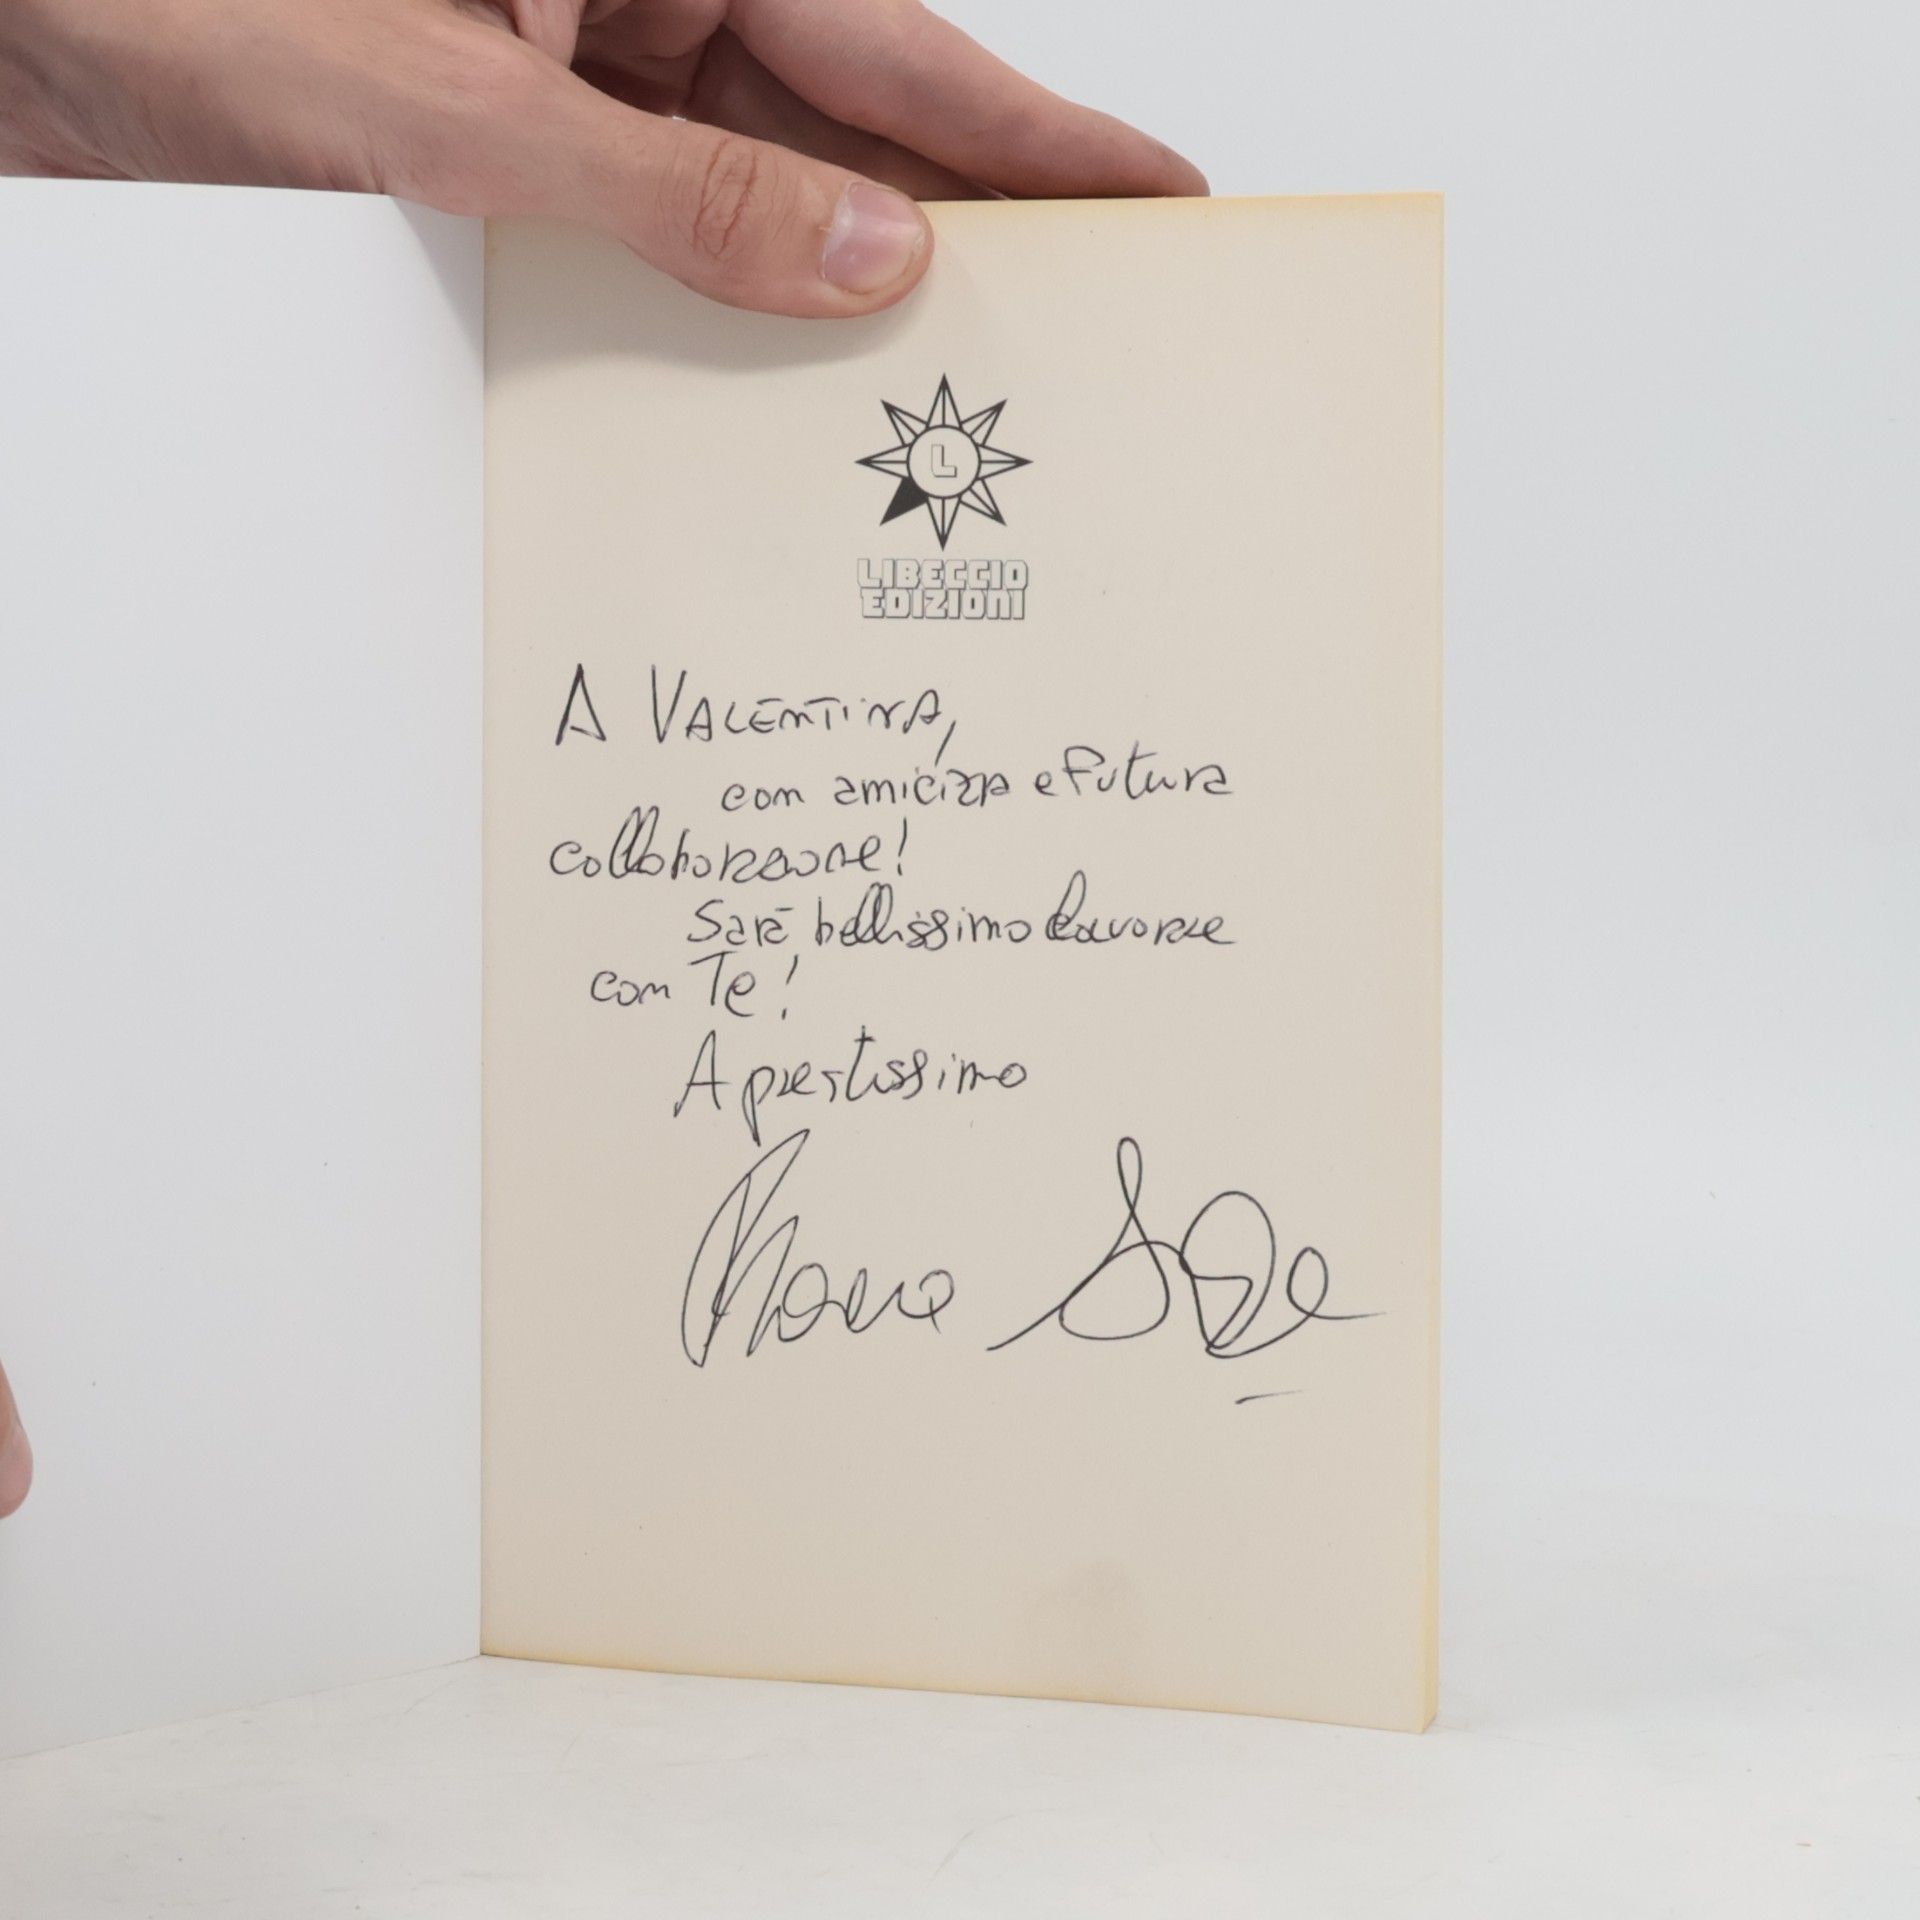 L
LIBECCIO
EDIZIONI
A VALENTINA,
con amicizia e futura
collaborazione!
Sarà bellissimo lavorare
con Te!
A prestissimo